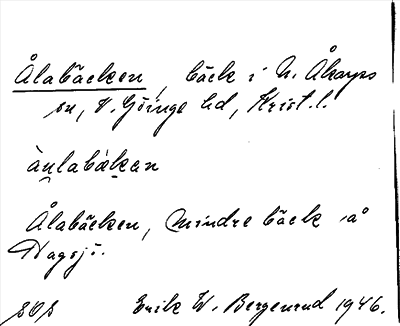 Ålabäcken, bäck i N. Åkarps
sn, V. Göinge hd, Krist. l.
àulabàkan
Ålabäcken, mindre bäck å
Hagsjö.
Erik W. Bergenrud 1946.